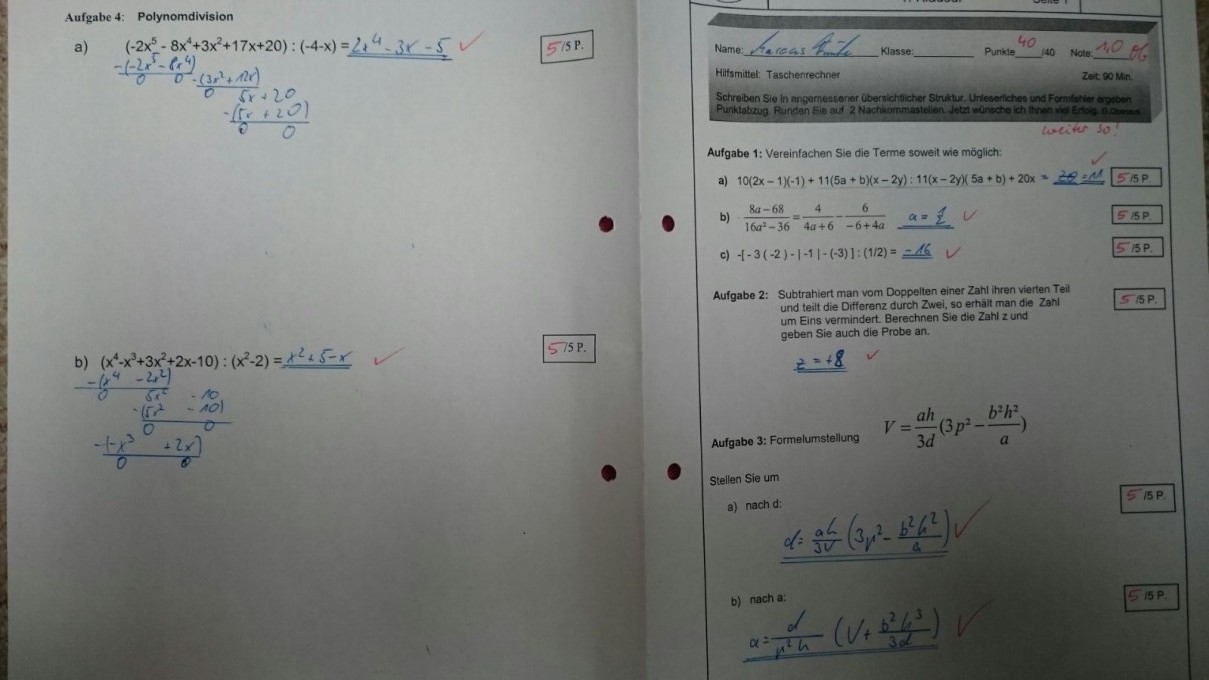 Aufgabe 4: Polynomdivision
a) (-2x⁵ - 8x⁴+3x²+17x+20) : (-4-x) = 2x⁴ - 3x - 5 ✓
5/5 P.
-(-2x⁵ - 8x⁴)
0 0 -(3x² + 12x)
0 5x + 20
-(5x + 20)
0 0
b) (x⁴-x³+3x²+2x-10) : (x²-2) = x² + 5 - x ✓
5/5 P.
-(x⁴ - 2x²)
0 5x² - 10
-(5x² - 10)
0 0
-(-x³ + 2x)
0 0
Seite 1
Name: Klasse: Punkte 40 /40 Note: 1,0
Hilfsmittel: Taschenrechner Zeit: 90 Min.
Schreiben Sie in angemessener übersichtlicher Struktur. Unleserliches und Formfehler ergeben
Punktabzug. Runden Sie auf 2 Nachkommastellen. Jetzt wünsche ich Ihnen viel Erfolg.
weiter so!
Aufgabe 1: Vereinfachen Sie die Terme soweit wie möglich:
a) 10(2x – 1)(-1) + 11(5a + b)(x – 2y) : 11(x – 2y)( 5a + b) + 20x = = 11 ✓ 5/5 P.
b) (8a – 68)/(16a² – 36) = 4/(4a + 6) - 6/(-6 + 4a) a = 1/2 ✓ 5/5 P.
c) -[ - 3 ( -2 ) - | -1 | - (-3) ] : (1/2) = -16 ✓ 5/5 P.
Aufgabe 2: Subtrahiert man vom Doppelten einer Zahl ihren vierten Teil
und teilt die Differenz durch Zwei, so erhält man die Zahl
um Eins vermindert. Berechnen Sie die Zahl z und
geben Sie auch die Probe an.
5/5 P.
z = +8 ✓
Aufgabe 3: Formelumstellung V = ah/3d (3p² – b²h²/a)
Stellen Sie um
a) nach d:
5/5 P.
d = ah/3V (3p² - b²h²/a) ✓
b) nach a:
5/5 P.
a = d/p²h (V + b²h³/3d) ✓